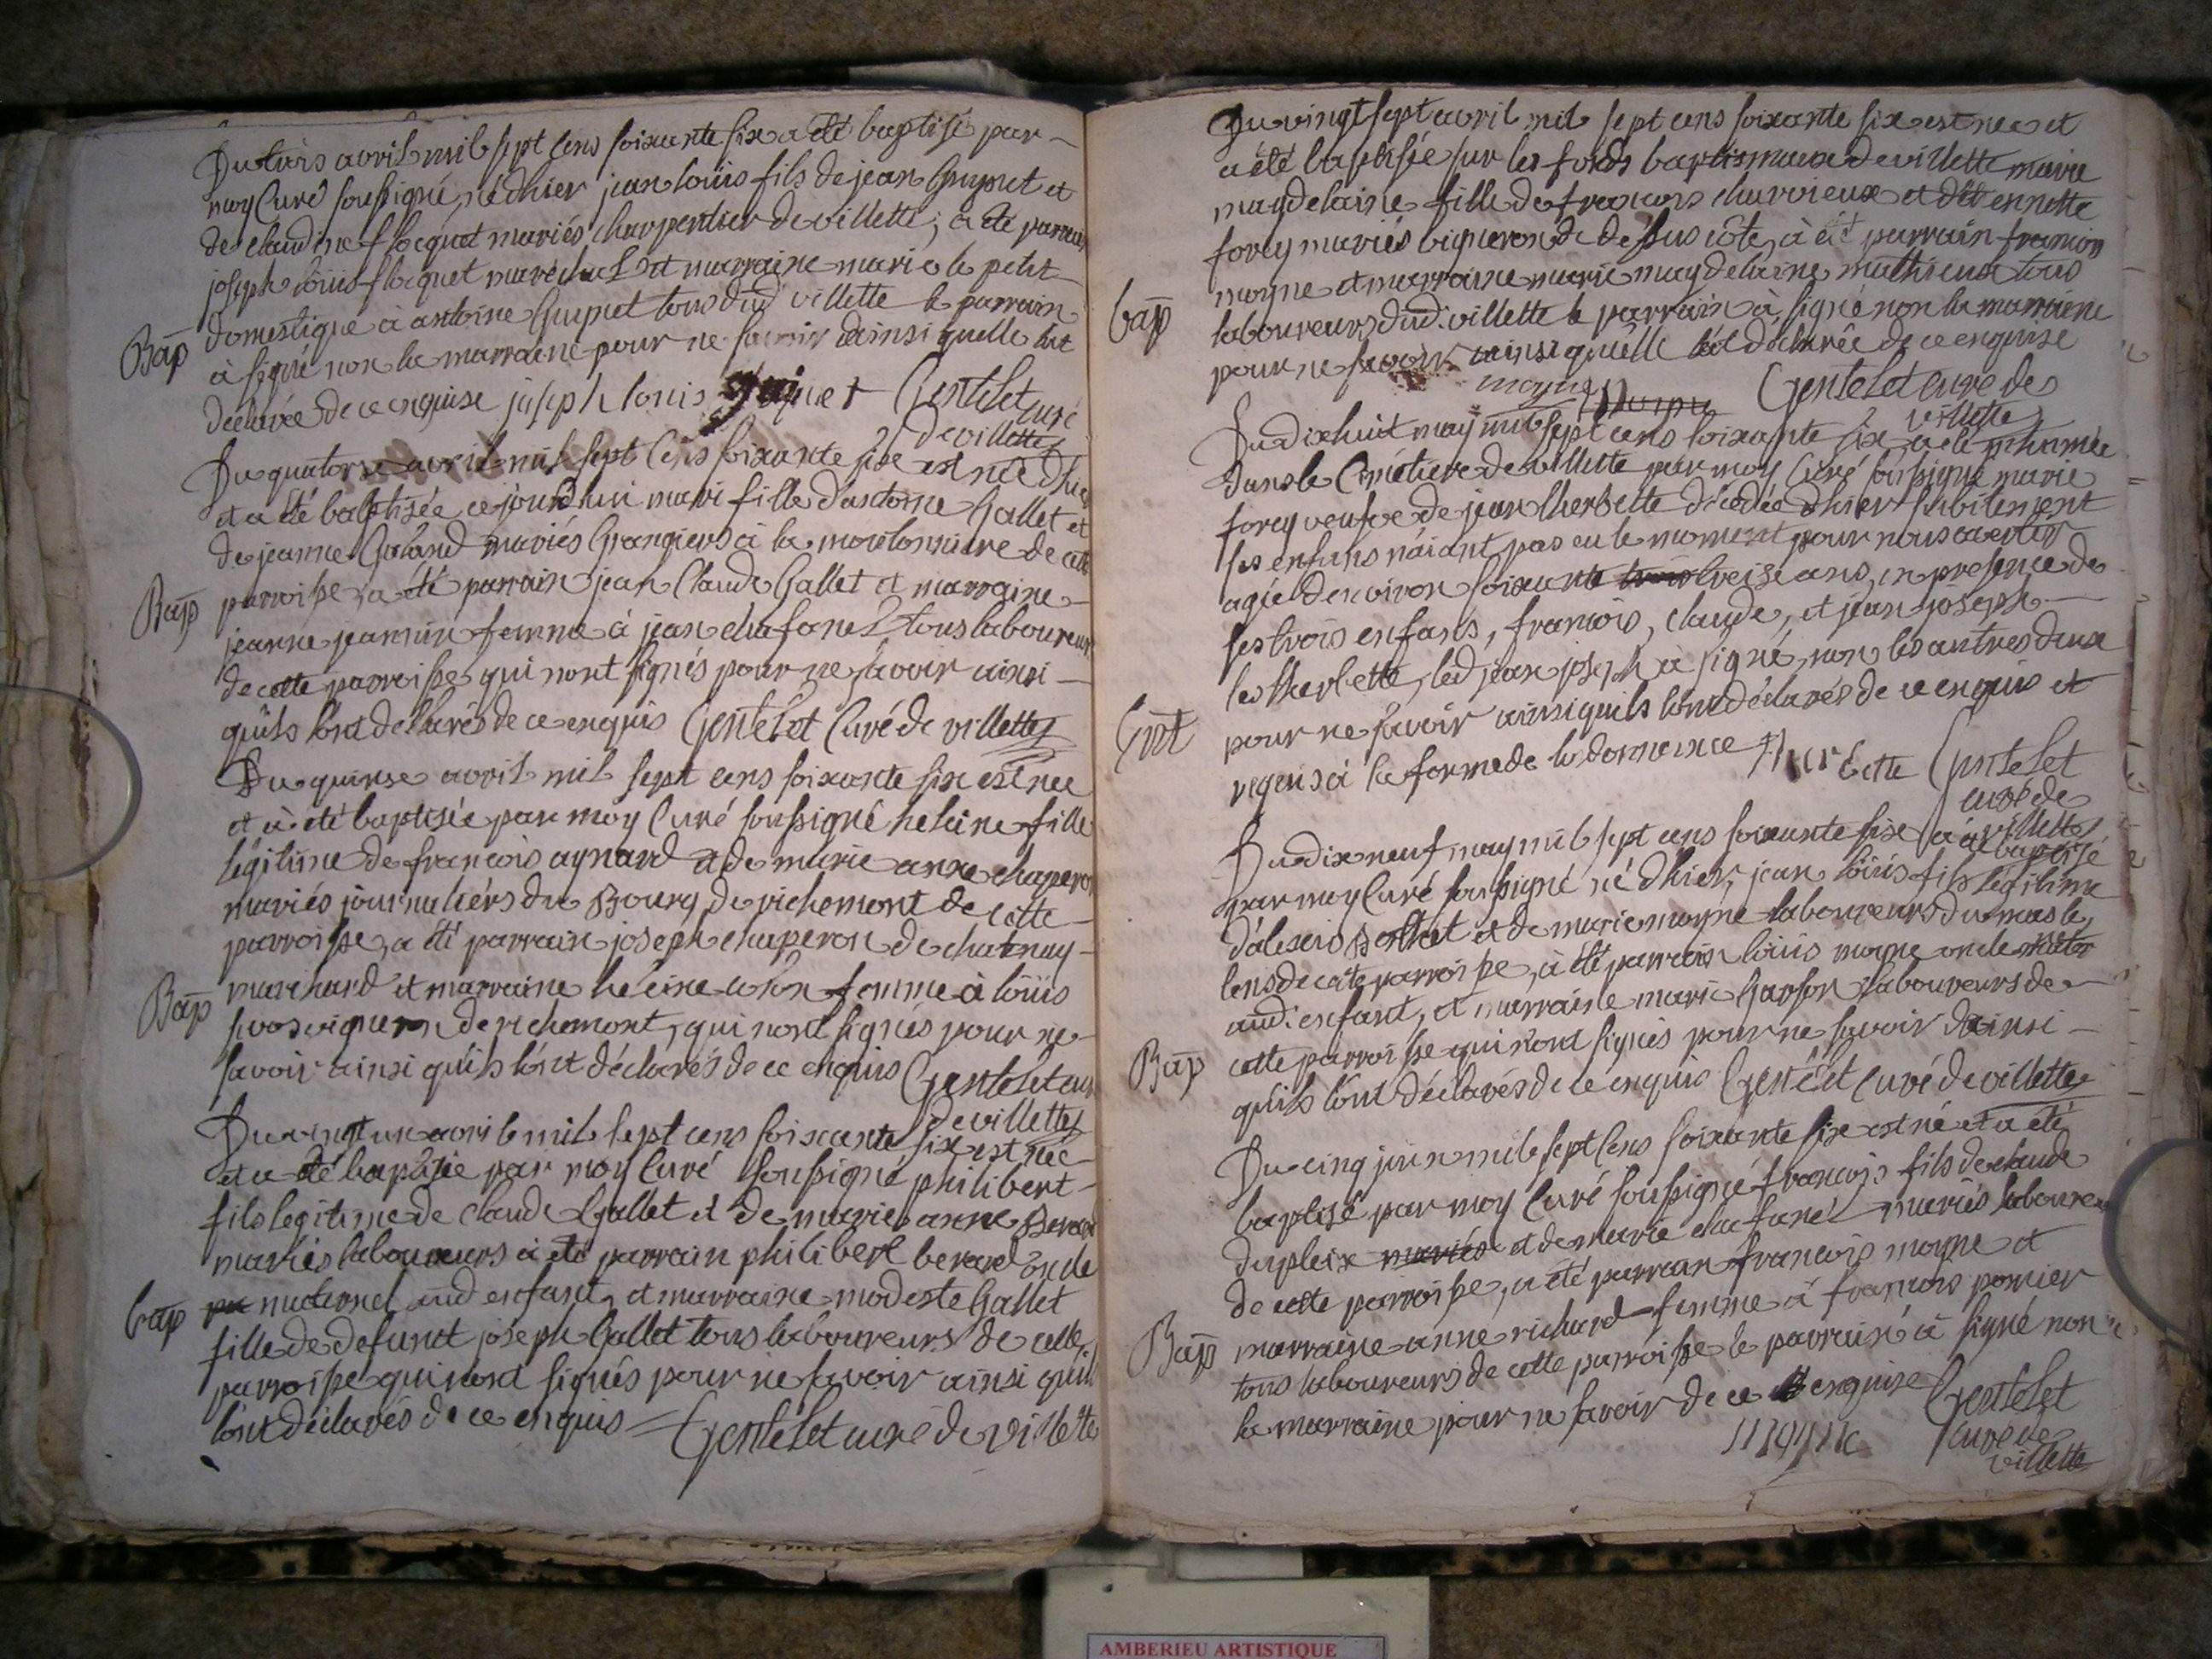 Du trois avril mil sept cens soixante six a été baptisé par
moy Curé soussigné, né d'hier jean loüis fils de jean Guynet et
de claudine flocquet mariés charpentier de villette, a été parrain
joseph loüis flocquet maréchal et marraine marie le petit
domestique à antoine Guynet tous dud villette le parrain
Bap
à signé non la marraine pour ne savoir ainsi quelle lat
déclarée de ce enquise joseph louis Gentelet curé
de villette
Du quatorse avril mil sept Cens soixante six est née d'hier
et a été baptisée ce jourdhui marie fille d'antoine Gallet et
de jeanne mariés Grangiers à la de cette
Bap
parroisse, a été parrain jean Claude Gallet et marraine
jeanne jeannin femme à jean chafanel tous laboureurs
de cette parroisse qui n'ont signés pour ne savoir ainsi
quils lont déclarés de ce enquis Gentelet Curé de villette
Du quinse avril mil sept cens soixante six est née
et à été baptisée par moy Curé soussigné heleine fille
légitime de francois aynard et de marie anne chaperon
mariés journaliers du Bourg de richemont de cette
parroisse, a été parrain joseph chaperon de chatenay
Bap
marchand et marraine heleine colon femme à loüis
vigneron de richemont, qui n'ont signés pour ne
savoir ainsi quils lont déclarés de ce enquis Gentelet curé
de villette
Du vingt un avril mil sept cens soixante six est né
et a été baptisé par moy Curé soussigné philibert
fils legitime de claude Gallet et de marie anne Berard
mariés laboureurs à été parrain philibert berard oncle
Bap
maternel aud enfant, et marraine modeste Gallet
fille de defunct joseph Gallet tous laboureurs de cette
parroisse qui n'ont signés pour ne savoir ainsi quils
lont déclarés de ce enquis Gentelet curé de villette
Du vingt sept avril mil sept cens soixante six est née et
a été baptisée sur les fonds baptismaux de villette marie
magdelaine fille de francois charvieux et d'étiennette
forey mariés vigneron de dessus côte, à été parrain francois
moyne et marraine marie magdelaine mathieux tous
Bap
laboureurs dud. villette le parrain à signé non la marraine
pour ne savoir ainsi quelle lat déclarée de ce enquise
moyne Gentelet curé de
villette
Du dix huit may mil sept cens soixante six a été inhumée
dans le Cimetiere de villette par moy Curé soussigné marie
forey veufve de jean lherbette décédée d'hier subitement
ses enfans n'aiant pas eu le moment pour nous avertir
agée denviron soixante treise ans, en presence de
ses trois enfans, francois, claude, et jean joseph
lherbette, led jean joseph à signé, non les autres deux
Ent
pour ne savoir ainsi quils lont déclarés de ce enquis et
requis à la forme de lordonnence lherbette Gentelet
curé de
villette
Du dix neuf may mil sept cens soixante six a été baptisé
par moy Curé soussigné, né d'hier, jean loüis fils légitime
d'alexis et de marie moyne laboureurs du mas le
lens de cette parroisse, à été parrain loüis moyne oncle mater
nel
aud. enfant, et marraine marie Garson laboureurs de
Bap
cette parroisse qui n'ont signés pour ne savoir ainsi
quils lont déclarés de ce enquis Gentelet Curé de villette
Du cinq juin mil sept cens soixante six est né et a été
baptisé par moy Curé soussigné francois fils de claude
dupleix mariés et de marie chafanel mariés laboureurs
de cette parroisse, a été parrain francois moyne et
Bap
marraine anne richard femme à francois pomier
tous laboureurs de cette parroisse le parrain à signé non
la marraine pour ne savoir de ce enquise Gentelet
moyne curé de
villette
AMBERIEU ARTISTIQUE